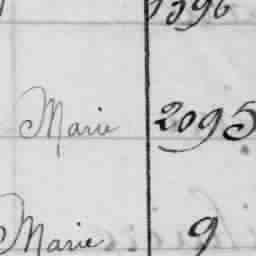 1396
Marie 2095
Marie 9